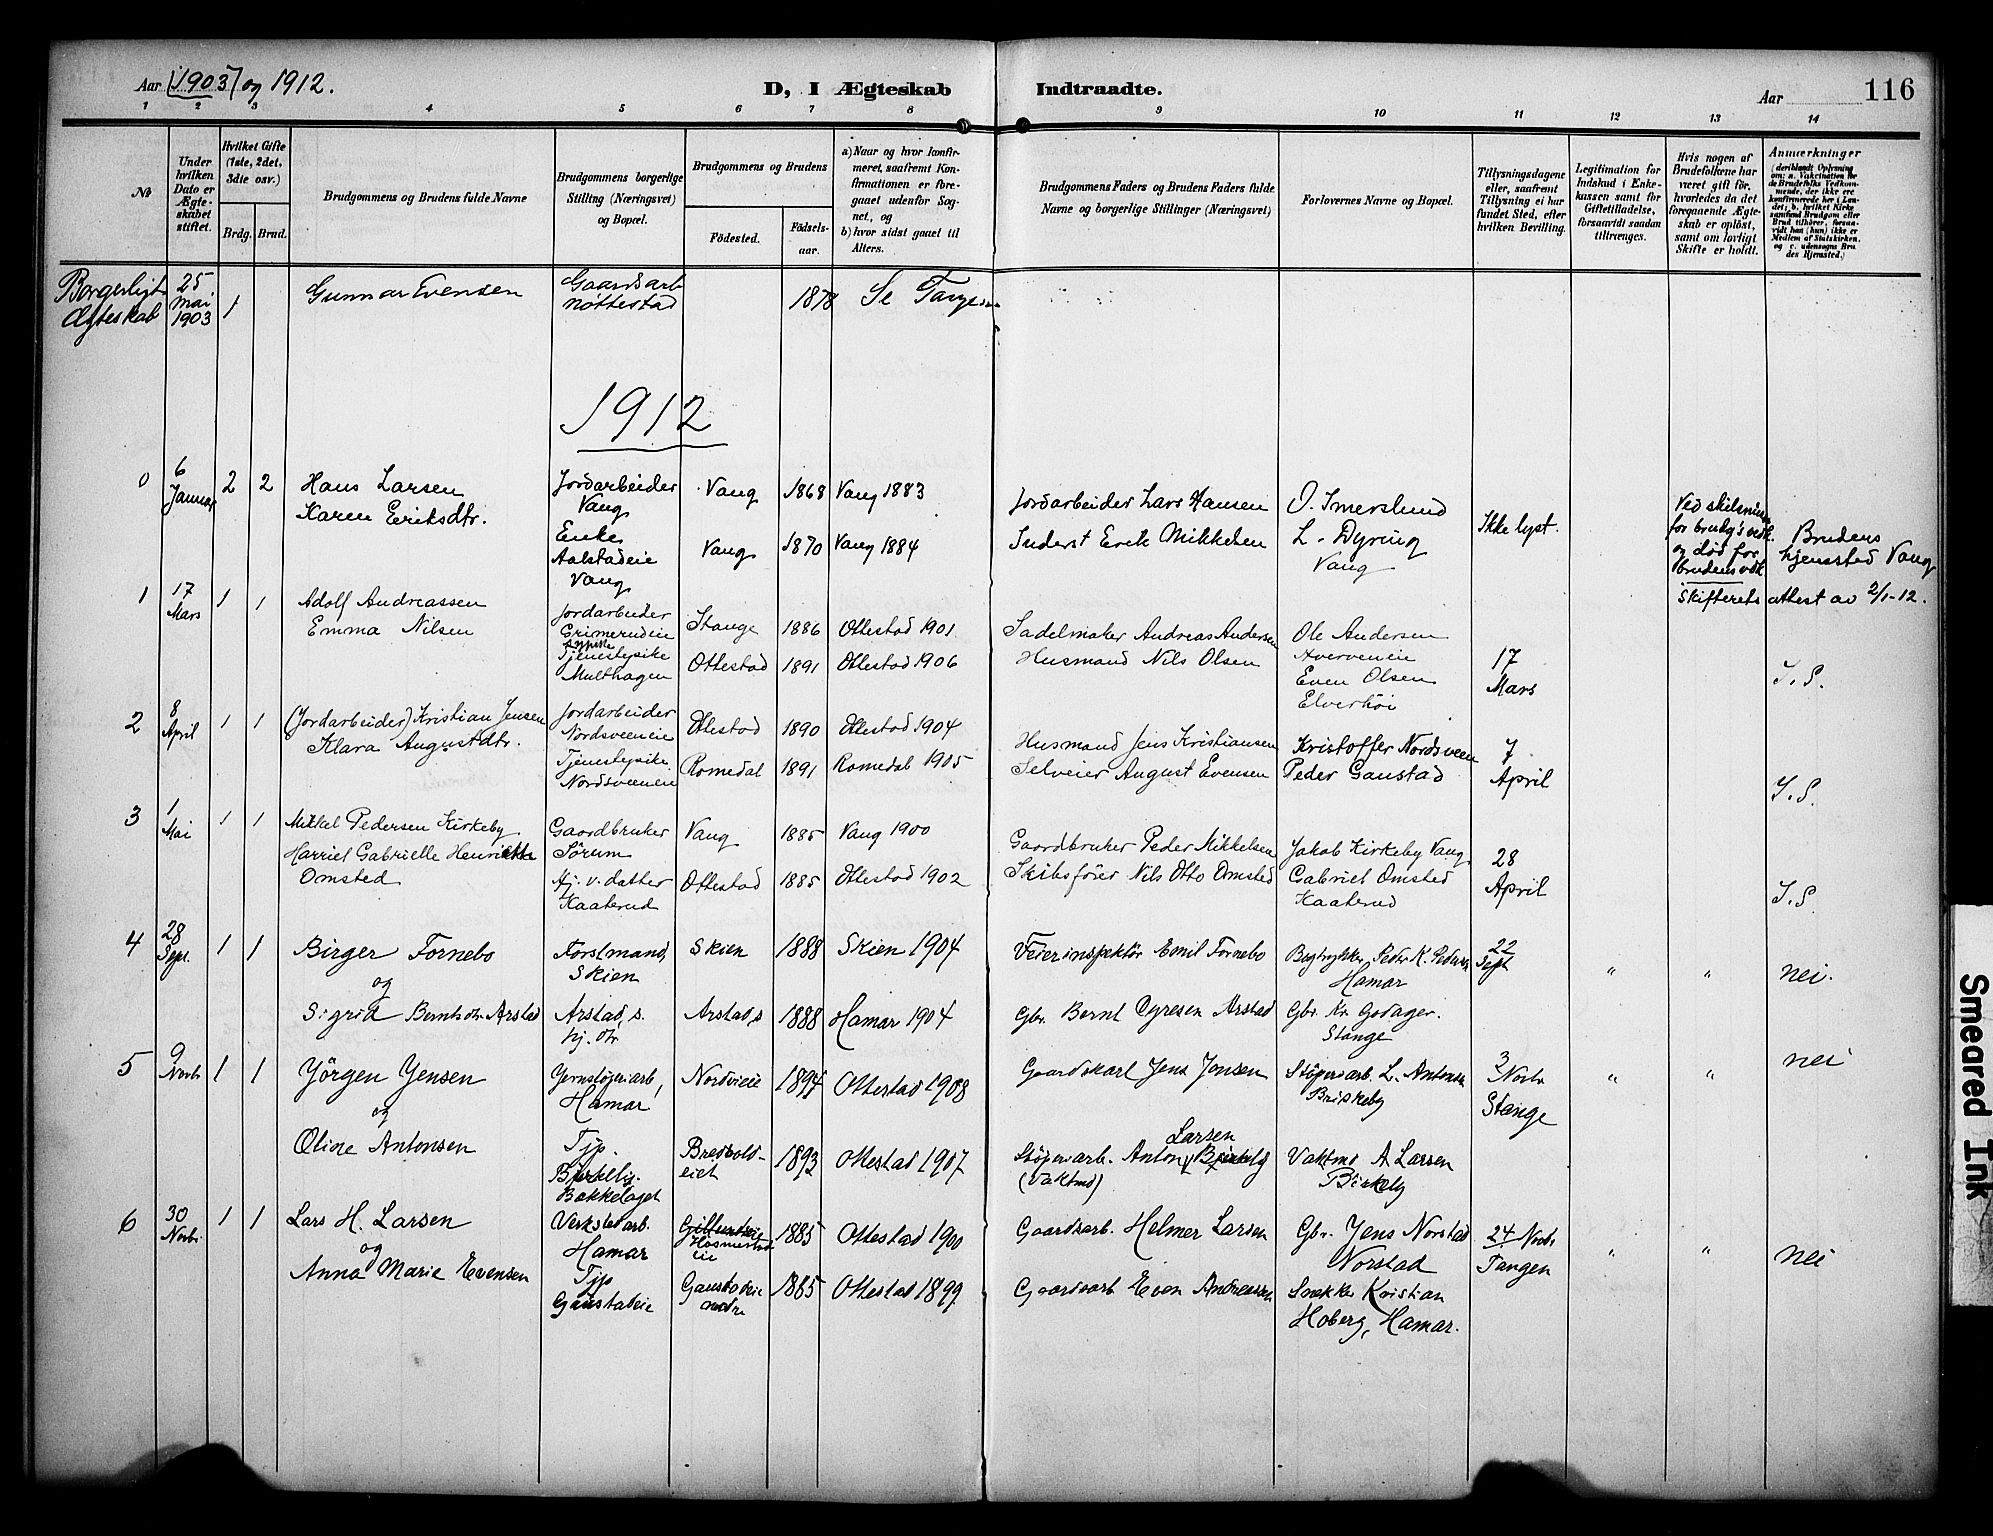 Aar (1903) og 1912.
D, I Ægteskab
Indtraadte.
Aar
116
1 2 3 4 5 6 7 8 9 10 11 12 13 14
No
Under hvilken Dato er Ægteskabet stiftet.
Hvilket Gifte (1ste, 2det, 3die osv.)
Brdg. Brud.
Brudgommens og Brudens fulde Navne
Brudgommens borgerlige Stilling (Næringsvei) og Bopæl.
Brudgommens og Brudens
Fødested.
Fødselsaar.
a) Naar og hvor konfirmeret, saafremt Konfirmationen er foregaaet udenfor Sognet, og
b) hvor sidst gaaet til Alters.
Brudgommens Faders og Brudens Faders fulde Navne og borgerlige Stillinger (Næringsvei)
Forlovernes Navne og Bopæl.
Tillysningsdagene eller, saafremt Tillysning ei har fundet Sted, efter hvilken Bevilling.
Legitimation for Indskud i Enkekassen samt for Giftetilladelse, forsaavidt saadan tiltrænges.
Hvis nogen af Brudefolkene har været gift før, hvorledes da det foregaaende Ægteskab er opløst, samt om lovligt Skifte er holdt.
Anmærkninger (deriblandt Oplysning om: a. Vakcination for de Brudefolks Vedkommende, der ikke ere konfirmerede her i Landet; b. hvilket Kirkesamfund Brudgom eller Brud tilhører, forsaavidt han (hun) ikke er Medlem af Statskirken, og c. udensogns Brudes Hjemsted.)
Borgerligt Ægteskab
25 Mai 1903
1
Gunnar Evensen
Gaardsarb Nøttestad
1878
Se Tangen
1912
0
6 Januar
2 2
Hans Larsen
Karen Eriksdtr.
Jordarbeider Vang
Enke Aalstadeie Vang
Vang 1868 Vang 1883
Vang 1870 Vang 1884
Jordarbeider Lars Hansen
Inderst Erik Mikkelsen
O. Imerslund
L. Dyring
Vang
Ikke lyst.
Ved skilsmisse for brudg's vedk. og død for brudens vedk.
Skifterets attest av 2/1-12.
Brudens hjemsted Vang
1
17 Mars
1 1
Adolf Andreassen
Emma Nilsen
Jordarbeider Grimerudeie
Tjenestepike Multhagen
Stange 1886 Ottestad 1901
Ottestad 1891 Ottestad 1906
Sadelmaker Andreas Andersen
Husmand Nils Olsen
Ole Andersen
Arverveneie
Even Olsen
Elverhøi
17 Mars
I. S.
2
8 April
1 1
(Jordarbeider) Kristian Jensen
Klara Augustdtr.
Jordarbeider Nordsveeneie
Tjenestepike Nordsveeneie
Ottestad 1890 Ottestad 1904
Romedal 1891 Romedal 1905
Husmand Jens Kristiansen
Selveier August Evensen
Kristoffer Nordsveen
Peder Gaustad
7 April
I. S.
3
1 Mai
1 1
Mikkel Pedersen Kirkeby
Harriet Gabrielle Henriette
Omsted
Gaardbruker Sørum
Hj. v. datter Kaaterud
Vang 1885 Vang 1900
Ottestad 1885 Ottestad 1902
Gaardbruker Peder Mikkelsen
Skibsfører Nils Otto Omsted
Jakob Kirkeby Vang
Gabriel Omsted
Kaaterud
28 April
I. S.
4
28 Sept.
1 1
Birger Fornebo
og
Sigrid Berntsdtr. Arstad
Forstmand, Skien
Arstad, s. hj. dtr
Skien 1888 Skien 1904
Arstad, s 1888 Hamar 1904
Feierinspektør Emil Fornebo
Gbr. Bernt Dyresen Arstad
Bogtrykker Peder K. Pedersen
Hamar
Gbr. Kr. Godager.
Stange
22 Sept
" "
nei.
5
9 Novbr
1 1
Jörgen Jensen
og
Oline Antonsen
Jernstøperiarb, Hamar
Tjp. Birkeby. Bakkelaget
Nordvieie 1894 Ottestad 1908
Bredvoldeiet 1893 Ottestad 1907
Gaardskarl Jens Jonsen
Støperiarb. Anton Larsen
(Vaktmd)
Støperiarb. L. Antonsen
Briskeby
Vaktmd A Larsen
Birkeby
3 Novbr Stange
" "
nei
6
30 Novbr.
1 1
Lars H. Larsen
og
Anna Marie Evensen
Verkstedarb. Hamar
Tjp Gaustadeie
Hosmestadeie 1885 Ottestad 1900
Gaustadeie nedre 1885 Ottestad 1899
Gaardsarb. Helmer Larsen
Gaardsarb Even Andreassen
Gbr. Jens Norstad
Norstad
Snekker Kristian
Hoberg, Hamar.
24 Novbr Tangen
" "
nei
Smeared Ink